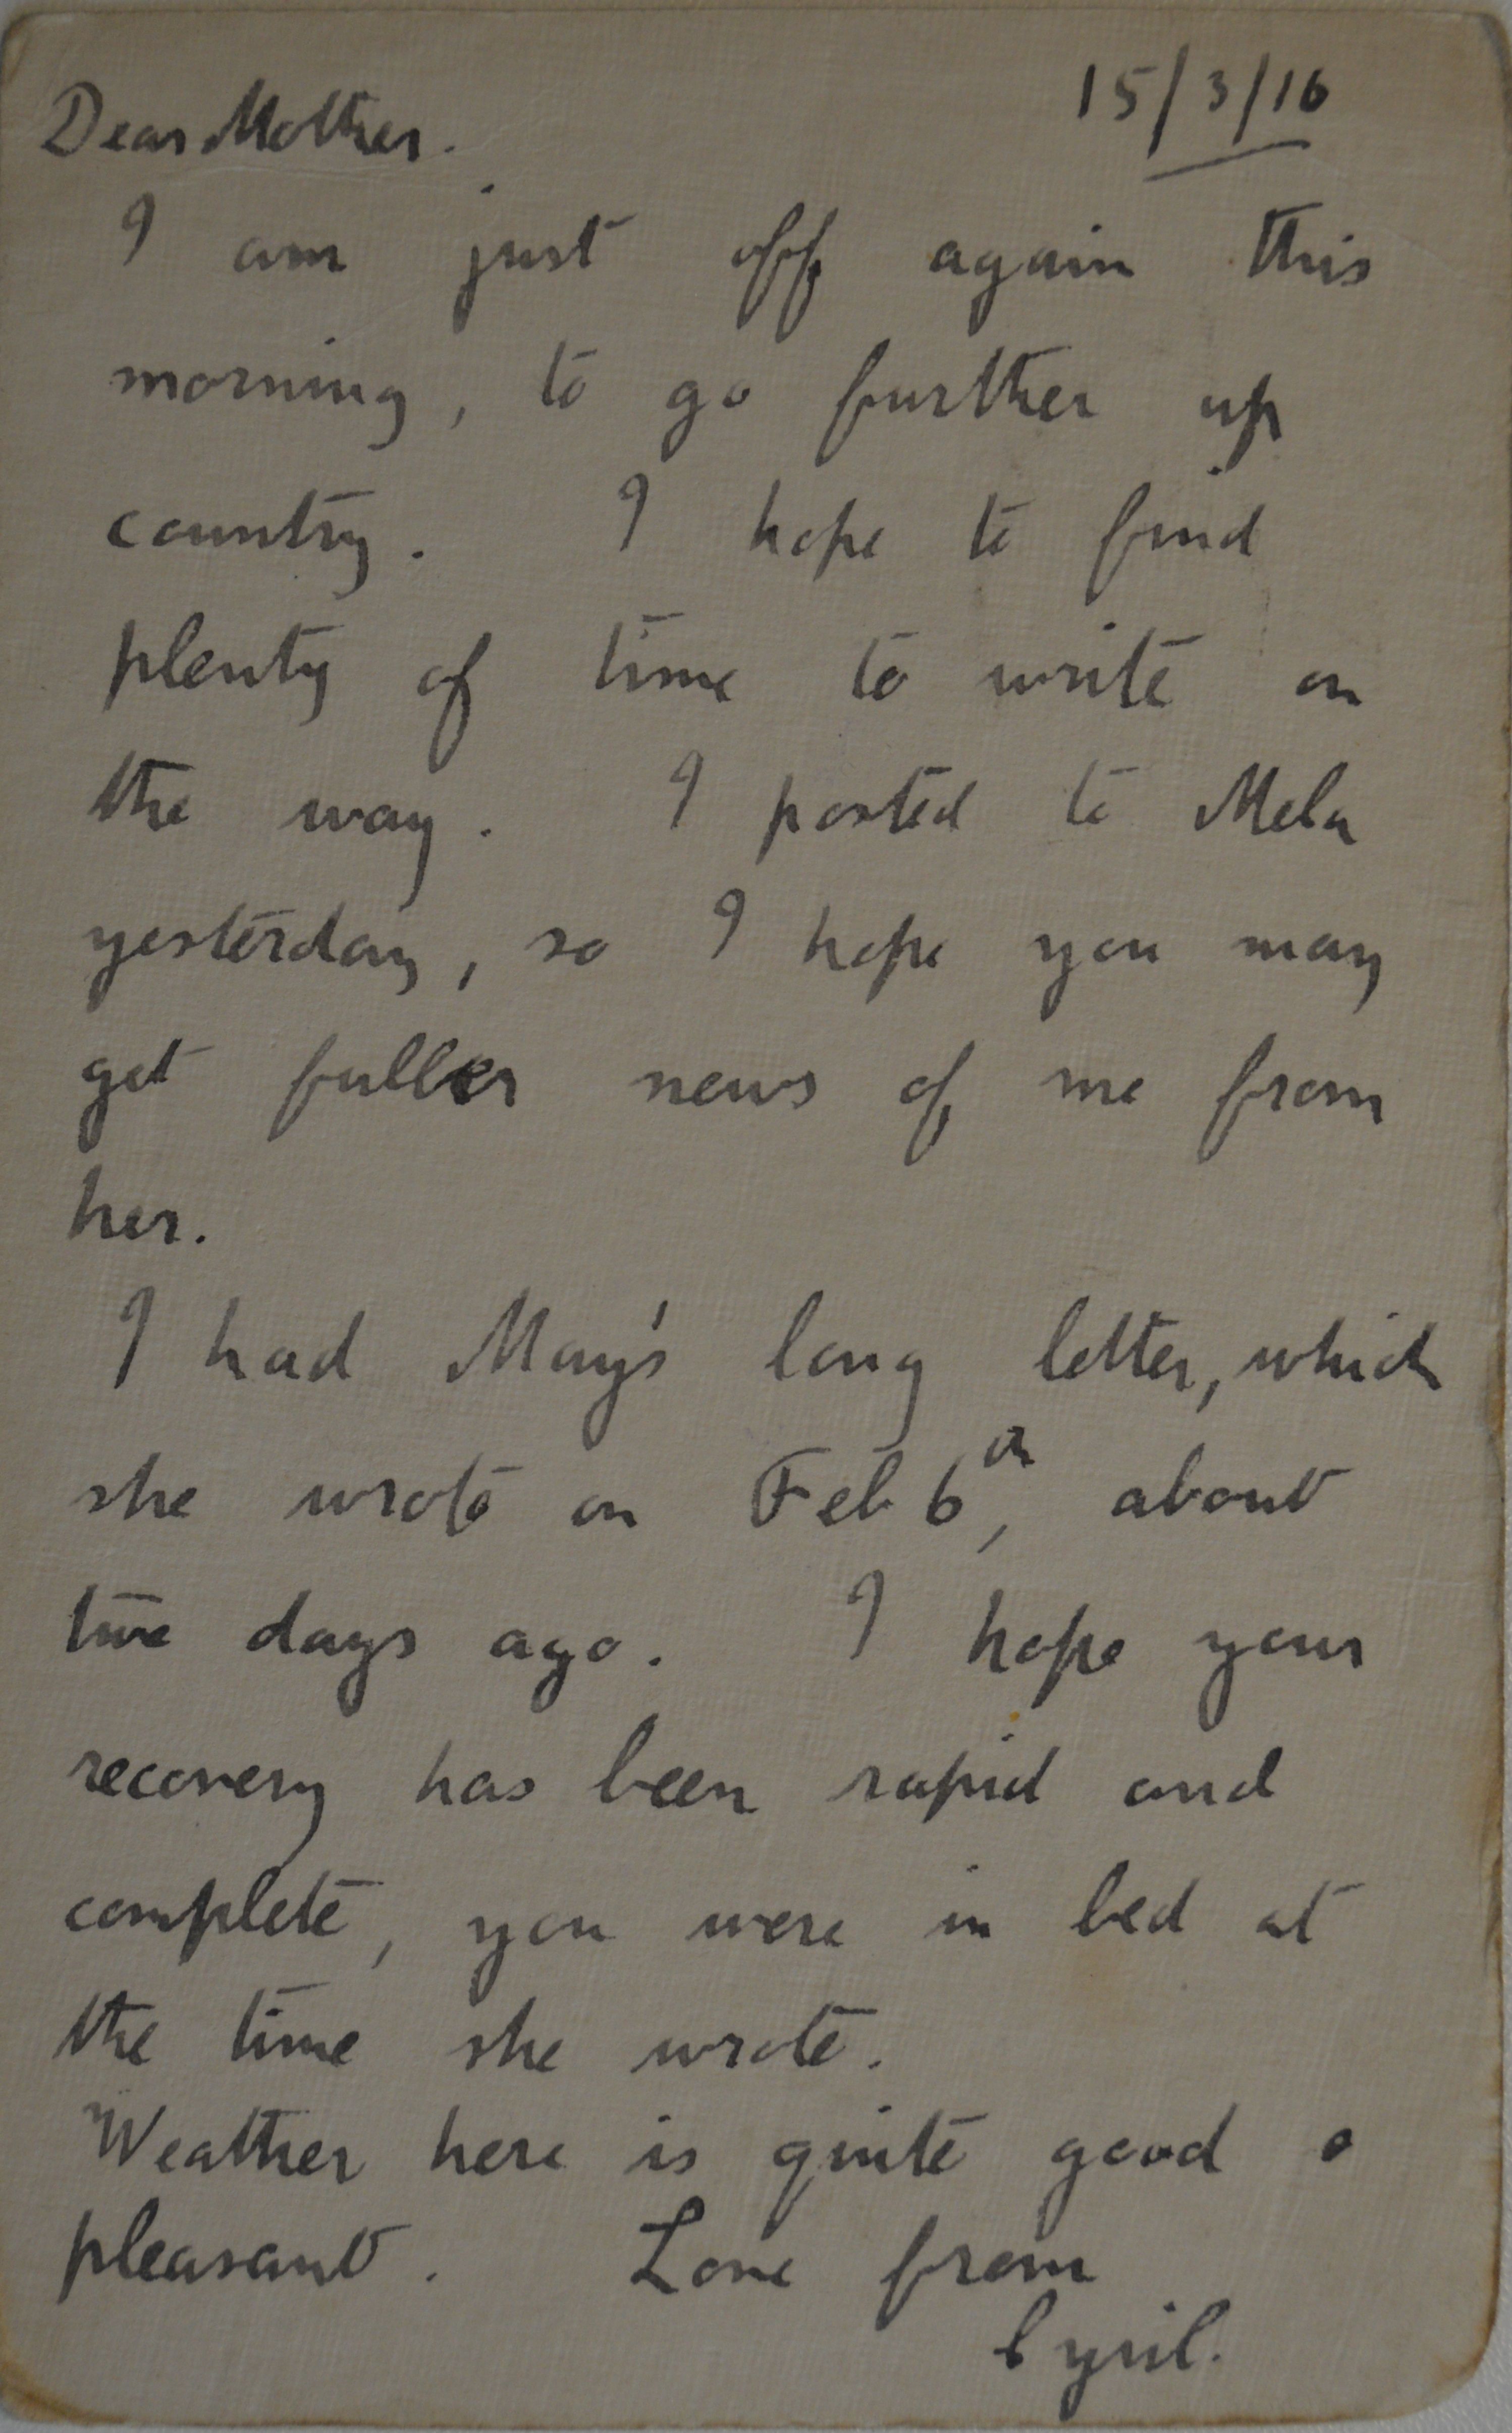 15/3/16
Dear Mother.
I am just off again this
morning, to go further up
country. I hope to find
plenty of time to write on
the way. I posted to Mela
yesterday, so I hope you may
get fuller news of me from
her.
I had May's long letter, which
she wrote on Feb 6th, about
two days ago. I hope your
recovery has been rapid and
complete, you were in bed at
the time she wrote.
Weather here is quite good &
pleasant. Love from
Cyril.